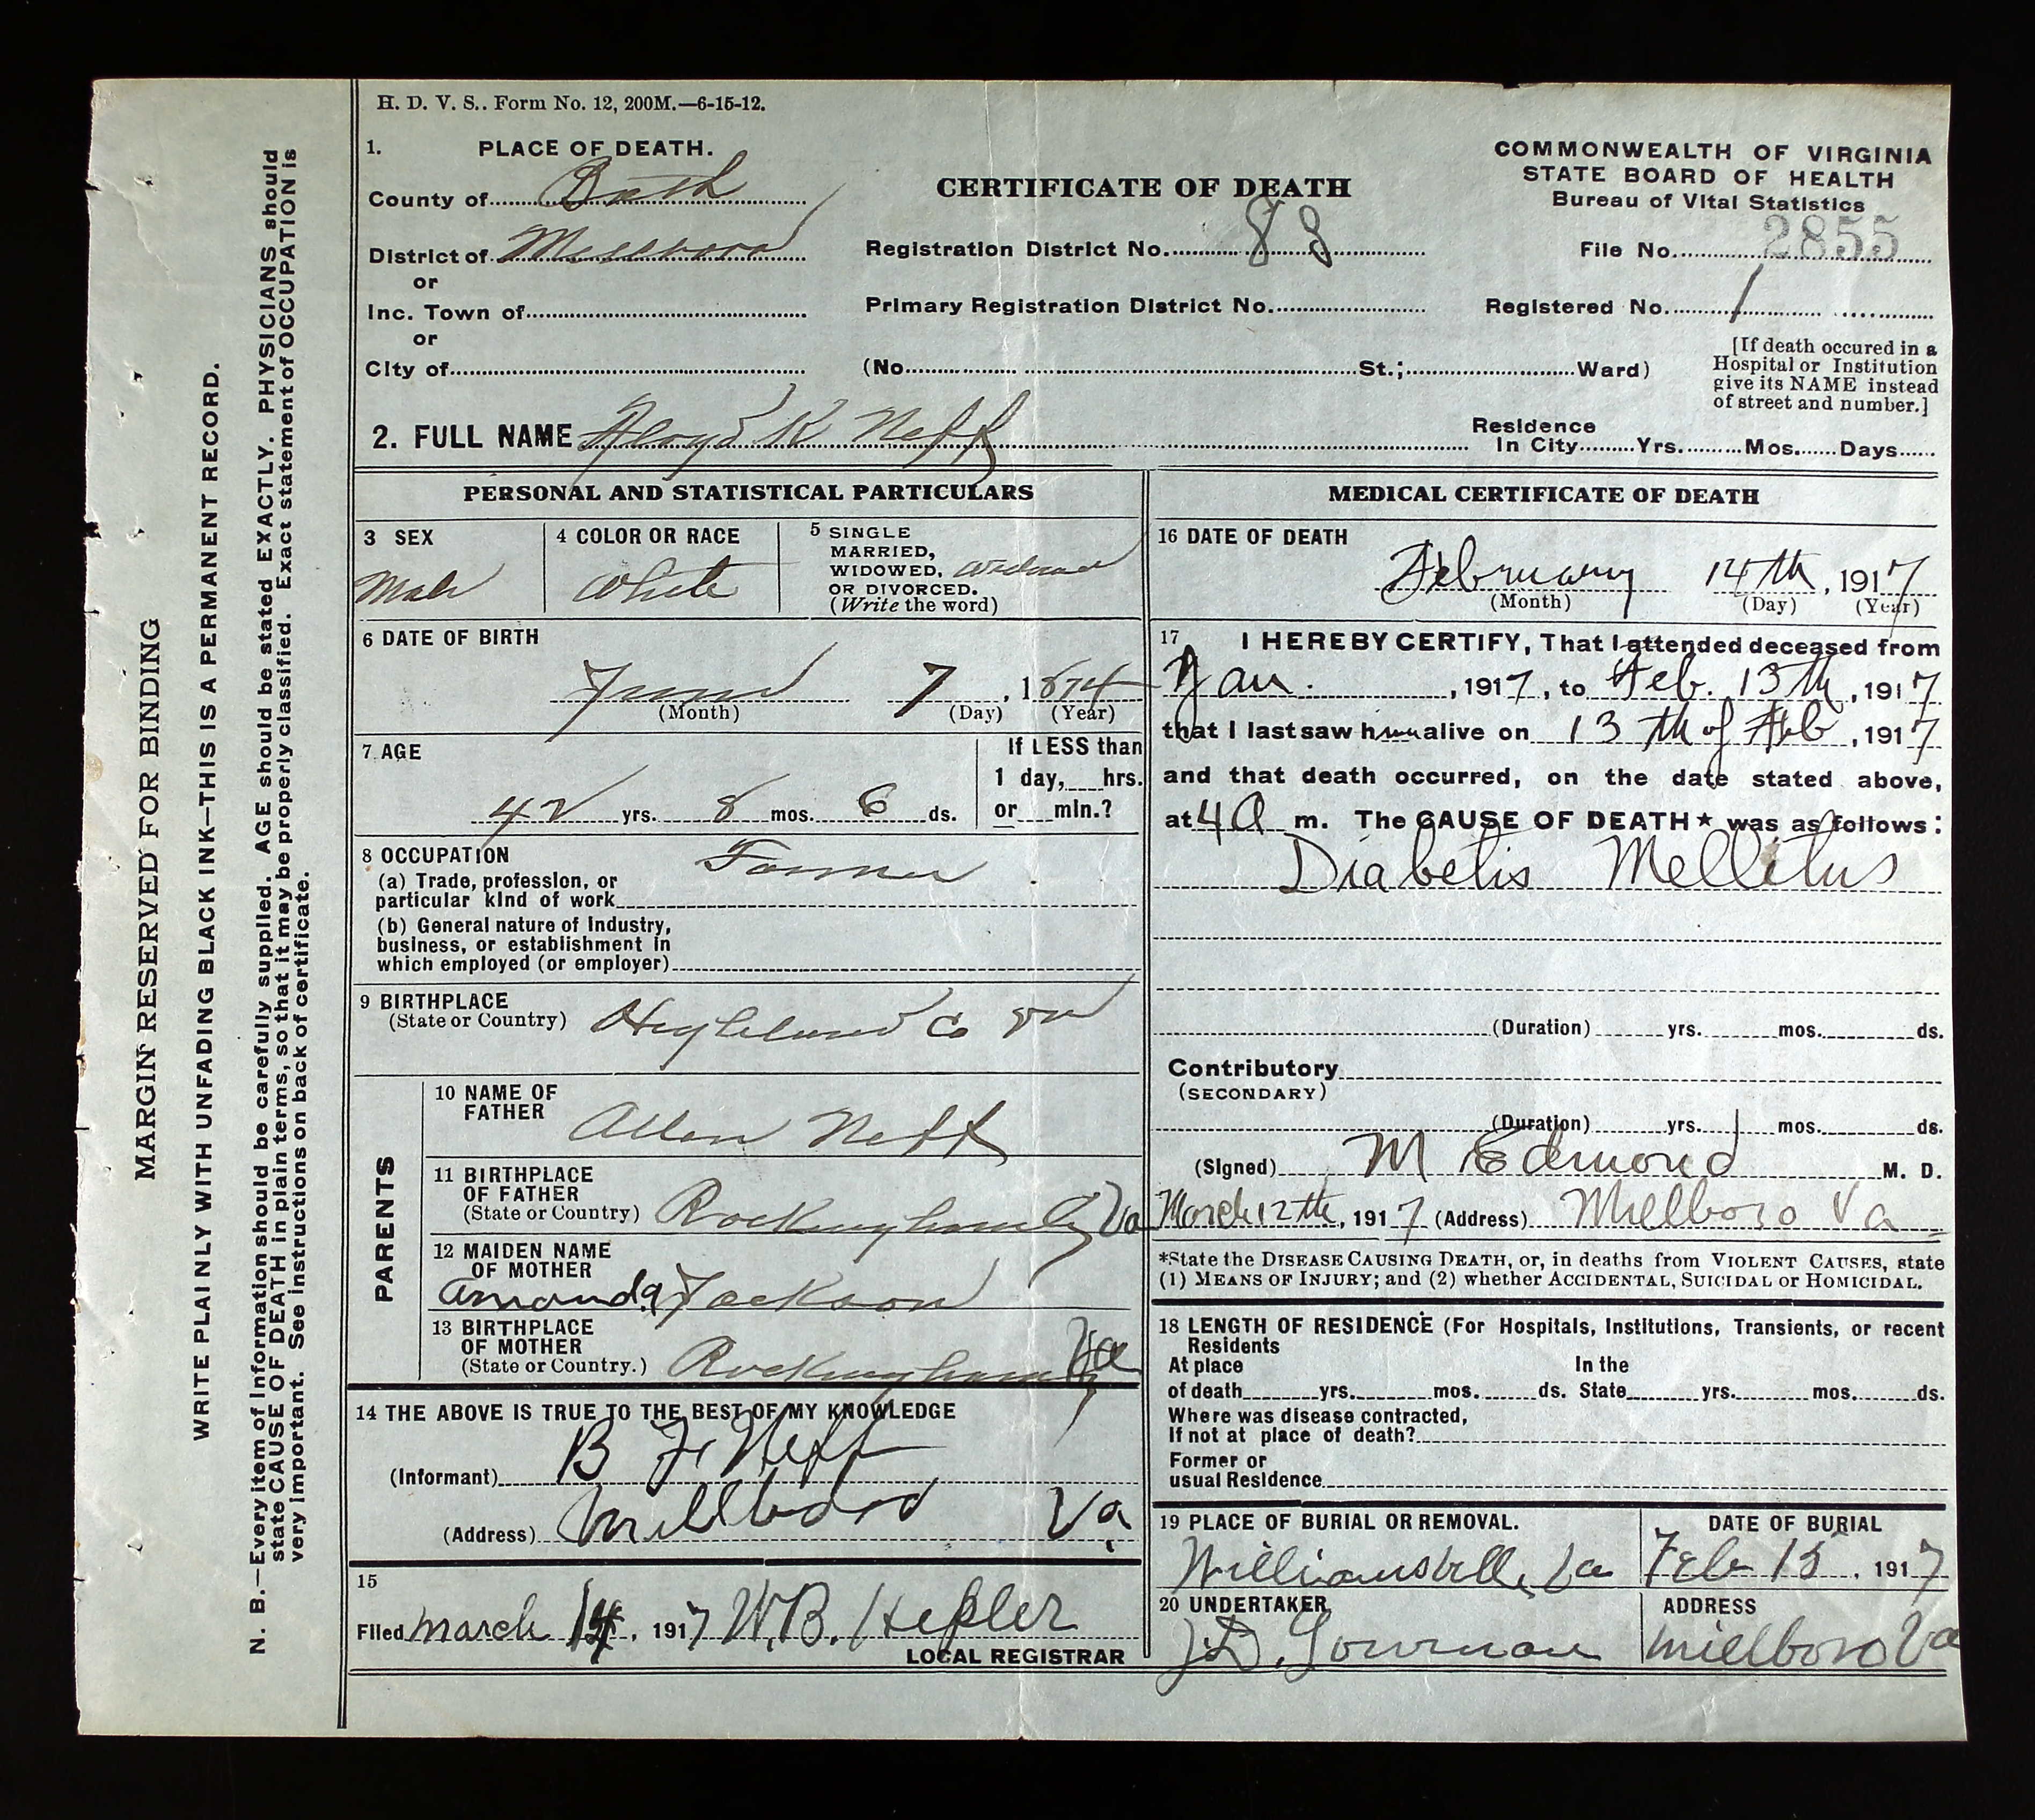 H. D. V. S.. Form No. 12, 200M.—6-15-12.
1. PLACE OF DEATH.
County of Bath
District of Millboro
or
Inc. Town of
or
City of
CERTIFICATE OF DEATH
Registration District No. 88
Primary Registration District No.
(No. St.; Ward)
COMMONWEALTH OF VIRGINIA
STATE BOARD OF HEALTH
Bureau of Vital Statistics
File No. 2855
Registered No. 1
[If death occured in a
Hospital or Institution
give its NAME instead
of street and number.]
2. FULL NAME Floyd K Neff
Residence
In City Yrs. Mos. Days
PERSONAL AND STATISTICAL PARTICULARS
3 SEX
Male
4 COLOR OR RACE
White
5 SINGLE
MARRIED,
WIDOWED, widower
OR DIVORCED.
(Write the word)
6 DATE OF BIRTH
June 7, 1874
(Month) (Day) (Year)
7 AGE
42 yrs. 8 mos. 6 ds.
If LESS than
1 day, hrs.
or min.?
8 OCCUPATION Farmer
(a) Trade, profession, or
particular kind of work
(b) General nature of Industry,
business, or establishment in
which employed (or employer)
9 BIRTHPLACE
(State or Country) Highland Co Va
PARENTS
10 NAME OF
FATHER
Allen Neff
11 BIRTHPLACE
OF FATHER
(State or Country) Rockingham Co Va
12 MAIDEN NAME
OF MOTHER
Amanda Jackson
13 BIRTHPLACE
OF MOTHER
(State or Country.) Rockingham Co Va
14 THE ABOVE IS TRUE TO THE BEST OF MY KNOWLEDGE
(Informant) B F Neff
(Address) Millboro Va
15
Filed March 14, 1917 W.B. Hepler
LOCAL REGISTRAR
MEDICAL CERTIFICATE OF DEATH
16 DATE OF DEATH
February 14th, 1917
(Month) (Day) (Year)
17 I HEREBY CERTIFY, That I attended deceased from
Jan. , 1917, to Feb. 13th, 1917
that I last saw him alive on 13th of Feb, 1917
and that death occurred, on the date stated above,
at 4 a m. The CAUSE OF DEATH★ was as follows:
Diabetis Mellitus
(Duration) yrs. mos. ds.
Contributory
(SECONDARY)
(Duration) yrs. mos. ds.
(Signed) M Edmond M. D.
March 12th, 1917 (Address) Millboro Va
*State the DISEASE CAUSING DEATH, or, in deaths from VIOLENT CAUSES, state
(1) MEANS OF INJURY; and (2) whether ACCIDENTAL, SUICIDAL or HOMICIDAL.
18 LENGTH OF RESIDENCE (For Hospitals, Institutions, Transients, or recent
Residents
At place In the
of death yrs. mos. ds. State yrs. mos. ds.
Where was disease contracted,
If not at place of death?
Former or
usual Residence
19 PLACE OF BURIAL OR REMOVAL.
Williamsville, Va
DATE OF BURIAL
Feb 15, 1917
20 UNDERTAKER
J.D. Lowman
ADDRESS
Millboro Va
MARGIN RESERVED FOR BINDING
WRITE PLAINLY WITH UNFADING BLACK INK—THIS IS A PERMANENT RECORD.
N. B.—Every item of Information should be carefully supplied. AGE should be stated EXACTLY. PHYSICIANS should
state CAUSE OF DEATH in plain terms, so that it may be properly classified. Exact statement of OCCUPATION is
very important. See instructions on back of certificate.